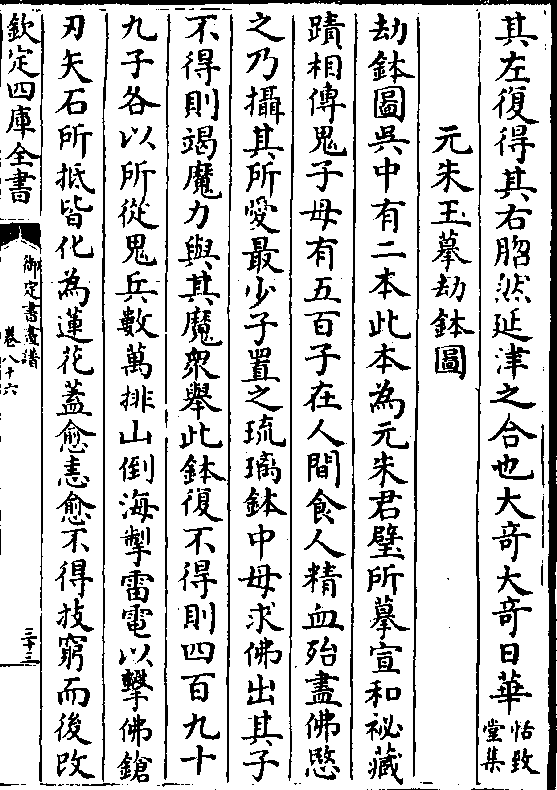 其左復得其右脗然延津之合也大奇大奇日華怡致堂集
元朱玉摹劫鉢圖
劫鉢圖吳中有二本此本為元朱君璧所摹宣和祕藏
蹟相傳鬼子母有五百子在人間食人精血殆盡佛愍
之乃攝其所愛最少子置之琉璃鉢中母求佛出其子
不得則竭魔力與其魔衆舉此鉢復不得則四百九十
九子各以所從鬼兵數萬排山倒海掣雷電以擊佛鎗
刃矢石所抵皆化為蓮花蓋愈恚愈不得技窮而後改
欽定四庫全書
御定書畫譜
卷八十六
三十三